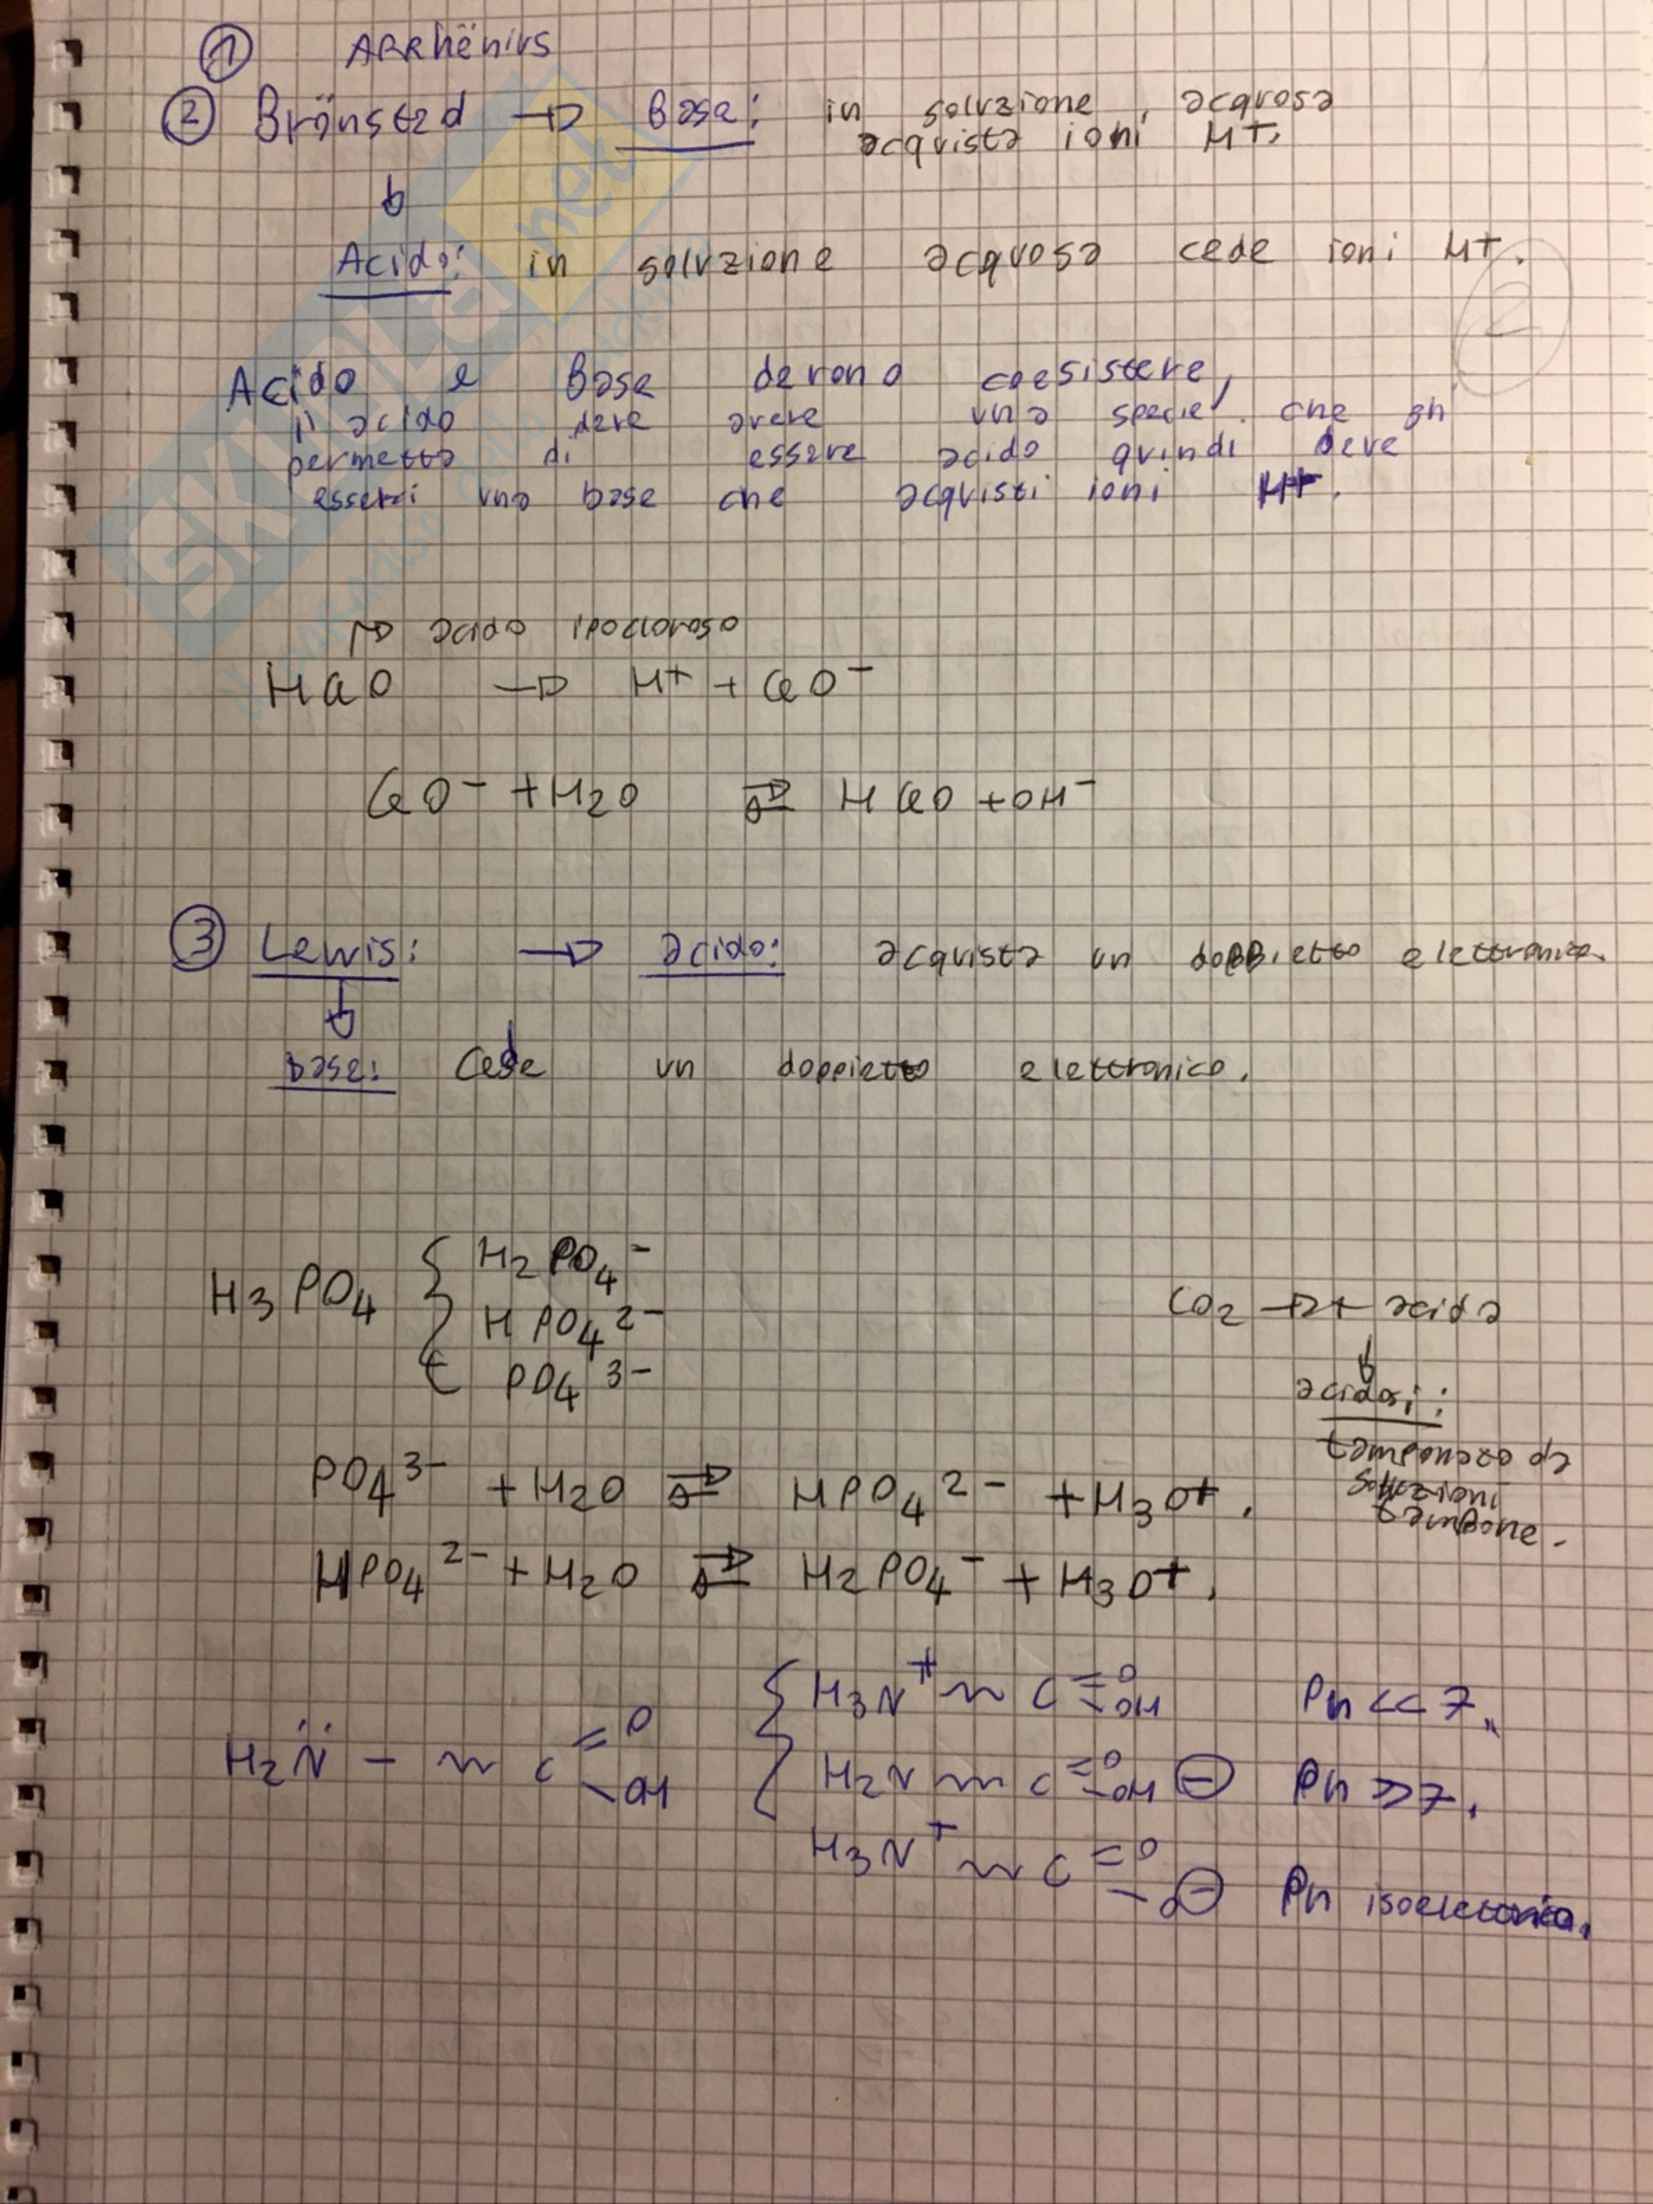 ① ARRhënius
② Brönsted → Base: in soluzione acquosa
acquista ioni H+.
↓
Acido: in soluzione acquosa cede ioni H+.
2
Acido e Base devono coesistere,
l'acido deve avere una specie che gli
permetta di essere acido quindi deve
esserci una base che acquisti ioni H+.
→ acido ipocloroso
HClO → H+ + ClO⁻
ClO⁻ + H2O ⇄ HClO + OH⁻
③ Lewis: → acido: acquista un doppietto elettronico.
↓
base: Cede un doppietto elettronico.
H3PO4 { H2PO4⁻
HPO4²⁻
PO4³⁻
CO2 → + acida
↓
acidosi:
tamponato da
soluzioni
tampone.
PO4³⁻ + H2O ⇄ HPO4²⁻ + H3O+.
HPO4²⁻ + H2O ⇄ H2PO4⁻ + H3O+.
H2N̈ – ~ C =O –OH
{ H3N+ ~ C =O –OH Ph << 7.
H2N ~ C =O –OH ⊖ Ph >> 7.
H3N+ ~ C =O –O⊖ Ph isoelettrico.
SKUOLA.net